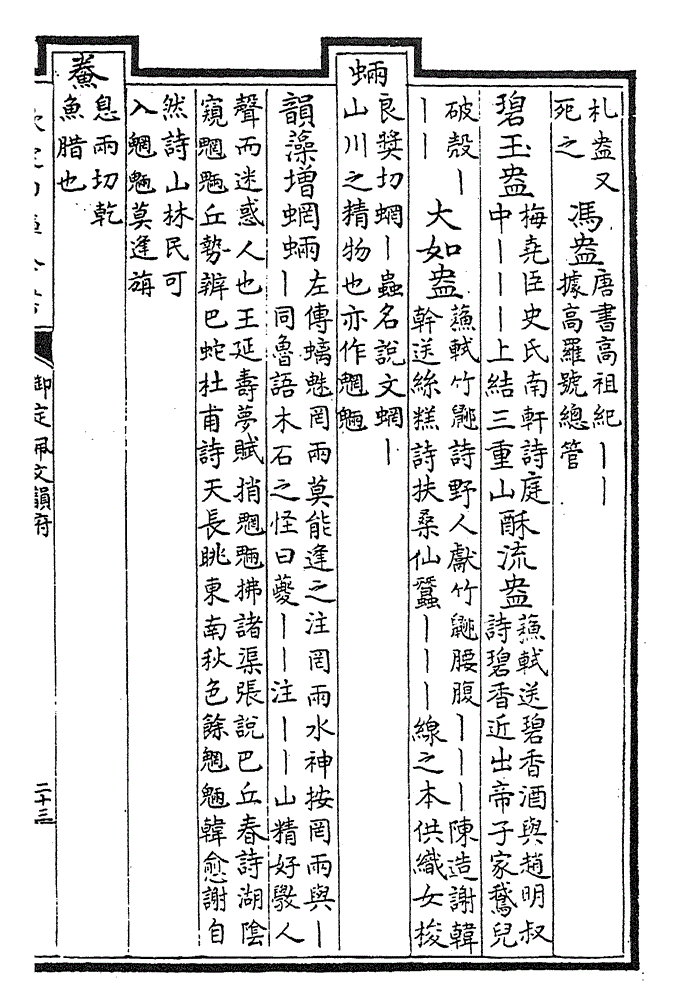 札盎又
死之
馮盎
唐書高祖紀｜｜
據高羅號總管
碧玉盎
梅堯臣史氏南軒詩庭
中｜｜｜上結三重山
酥流盎
蘓軾送碧香酒與趙明叔
詩碧香近出帝子家鵞兒
破殼｜
｜｜
大如盎
蘓軾竹䶉詩野人獻竹䶉腰腹｜｜｜陳造謝韓
幹送絲糕詩扶桑仙蠶｜｜｜線之本供織女梭
蜽
良奬切蝄｜蟲名說文蝄｜
山川之精物也亦作魍魎
韻藻增蝄蜽
左傳螭魅罔兩莫能逢之注罔兩水神按罔兩與｜
｜同魯語木石之怪曰夔｜｜注｜｜山精好斆人
聲而迷惑人也王延壽夢賦捎魍魎拂諸渠張說巴丘春詩湖陰
窺魍魎丘勢辨巴蛇杜甫詩天長眺東南秋色餘魍魎韓愈謝自
然詩山林民可
入魍魎莫逢旃
鯗
息兩切乾
魚腊也
御定佩文韻府
二十三